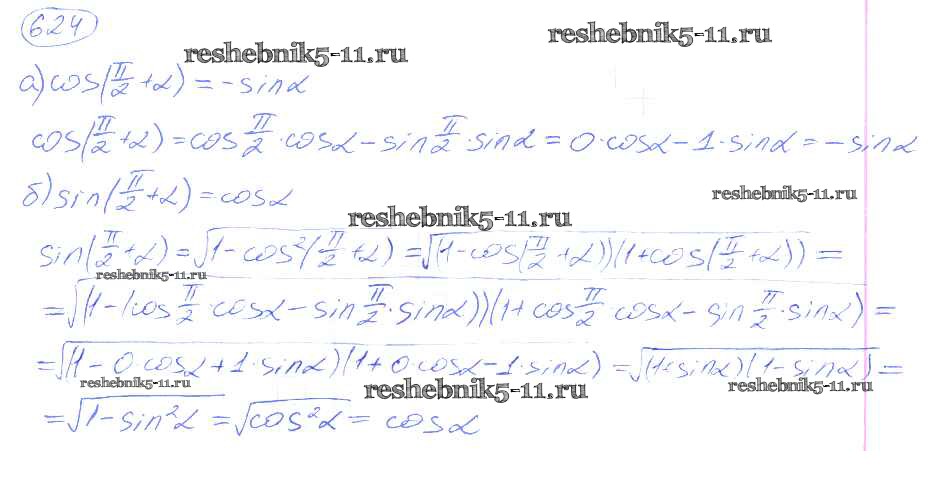 624
reshebnik5-11.ru
reshebnik5-11.ru
а) cos(π/2 + α) = -sinα
cos(π/2 + α) = cos π/2 · cosα - sin π/2 · sinα = 0·cosα - 1·sinα = -sinα
б) sin(π/2 + α) = cosα
reshebnik5-11.ru
reshebnik5-11.ru
sin(π/2 + α) = √(1-cos²(π/2 + α)) = √((1-cos(π/2 + α))(1+cos(π/2 + α))) =
reshebnik5-11.ru
= √((1-(cos π/2 · cosα - sin π/2 · sinα))(1+cos π/2 · cosα - sin π/2 · sinα)) =
= √((1-0·cosα+1·sinα)(1+0·cosα-1·sinα)) = √((1+sinα)(1-sinα)) =
reshebnik5-11.ru
reshebnik5-11.ru
reshebnik5-11.ru
= √(1-sin²α) = √(cos²α) = cosα